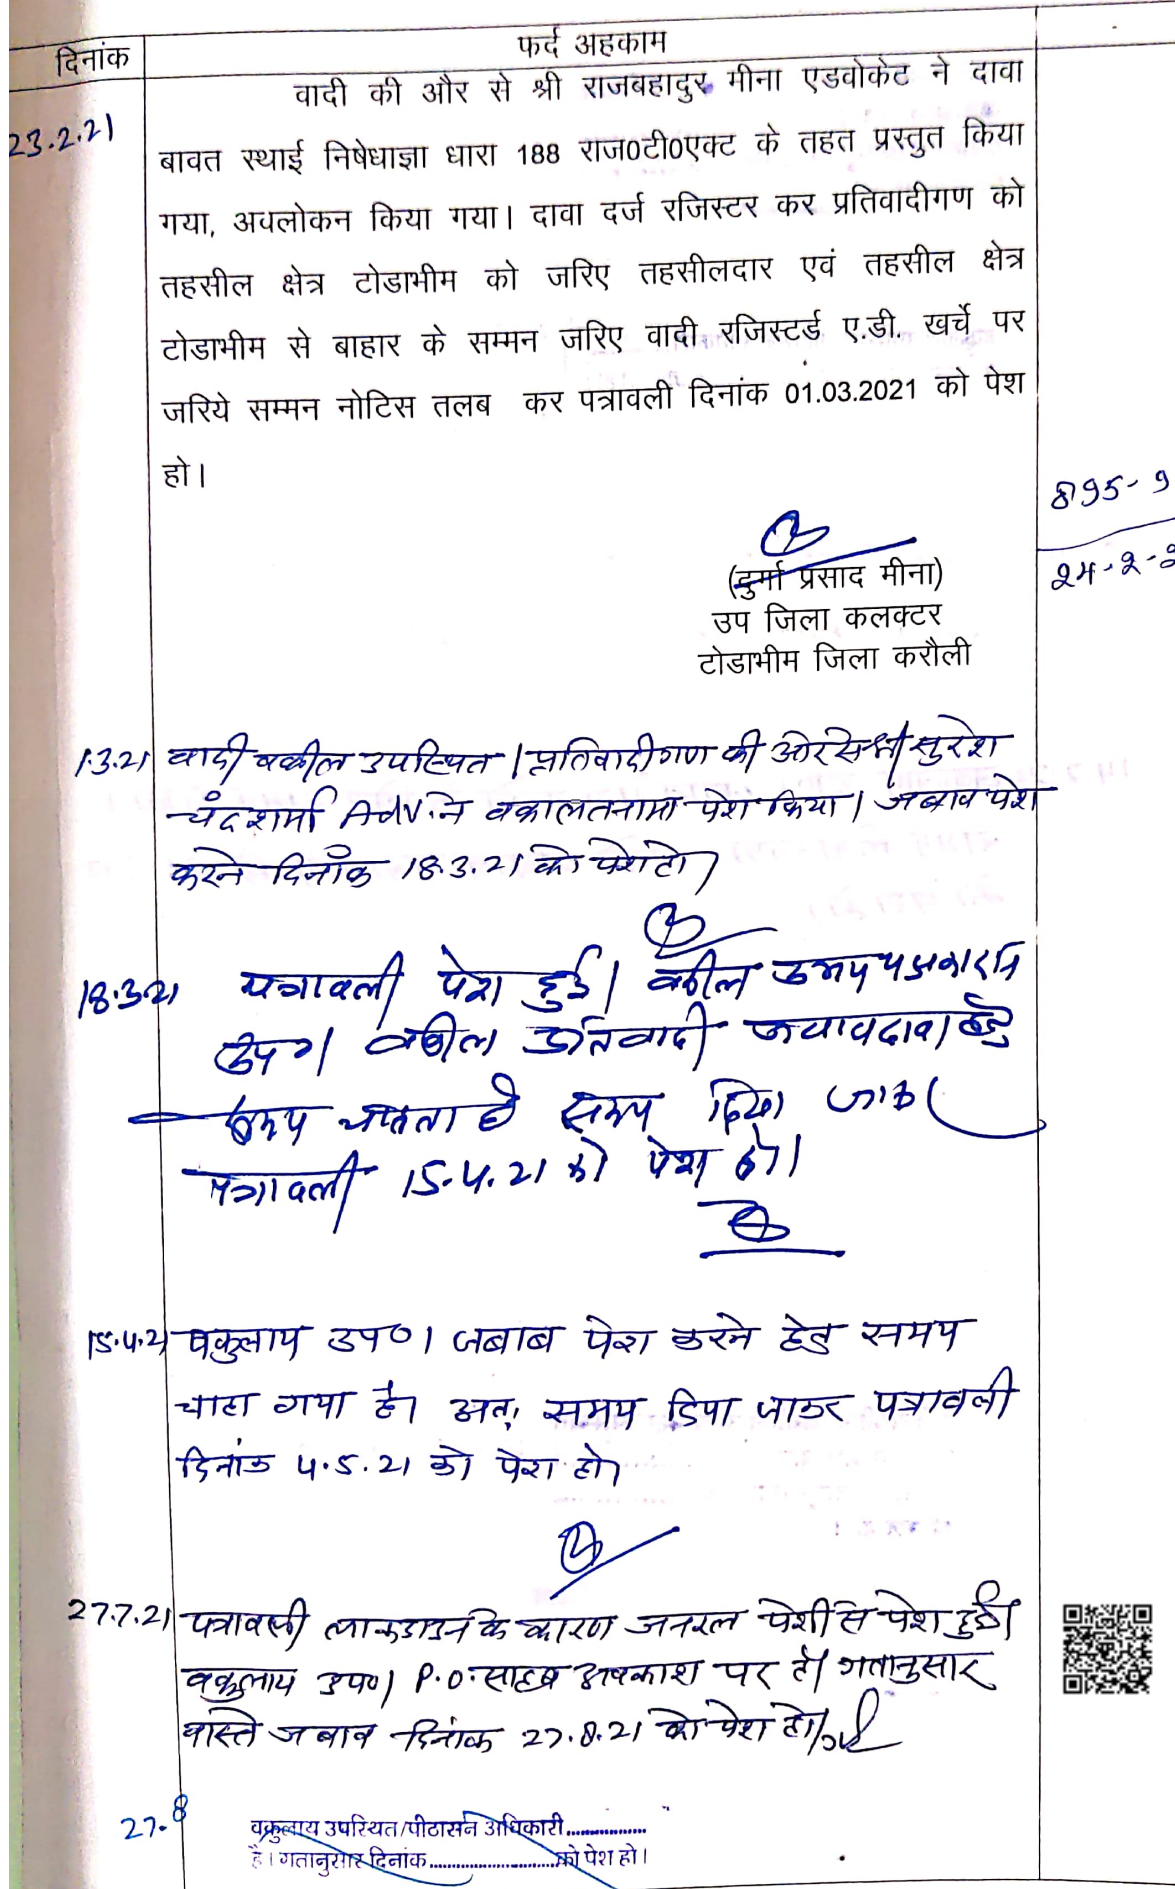 दिनांक
फर्द अहकाम
23.2.21
वादी की और से श्री राजबहादुर मीना एडवोकेट ने दावा
बावत स्थाई निषेधाज्ञा धारा 188 राज0टी0एक्ट के तहत प्रस्तुत किया
गया, अवलोकन किया गया। दावा दर्ज रजिस्टर कर प्रतिवादीगण को
तहसील क्षेत्र टोडाभीम को जरिए तहसीलदार एवं तहसील क्षेत्र
टोडाभीम से बाहार के सम्मन जरिए वादी रजिस्टर्ड ए.डी. खर्चे पर
जरिये सम्मन नोटिस तलब कर पत्रावली दिनांक 01.03.2021 को पेश
हो।
895-9
24-2-2
(दुर्गा प्रसाद मीना)
उप जिला कलक्टर
टोडाभीम जिला करौली
1.3.21 वादी वकील उपस्थित। प्रतिवादीगण की ओर से श्री सुरेश
चंद शर्मा Adv. ने वकालतनामा पेश किया। जबाव पेश
करने दिनाँक 18.3.21 को पेश हो।
18.3.21 पत्रावली पेश हुई। वकील उभय पक्षकारान
उप०। वकील प्रतिवादी जवाबदावा हेतु
समय चाहता है समय दिया जाकर
पत्रावली 15.4.21 को पेश हो।
15.4.21 वकुलाय उप०। जबाब पेश करने हेतु समय
चाहा गया है। अतः समय दिया जाकर पत्रावली
दिनांक 4.5.21 को पेश हो।
27.7.21 पत्रावली लाकडाउन के कारण जनरल पेशी से पेश हुई।
वकुलाय उप०। P.O. साहब अवकाश पर है। गतानुसार
वास्ते जबाव दिनांक 27.8.21 को पेश हो।
27.8
वकुलाय उपस्थित/पीठासन अधिकारी................
है। गतानुसार दिनांक.........................को पेश हो।